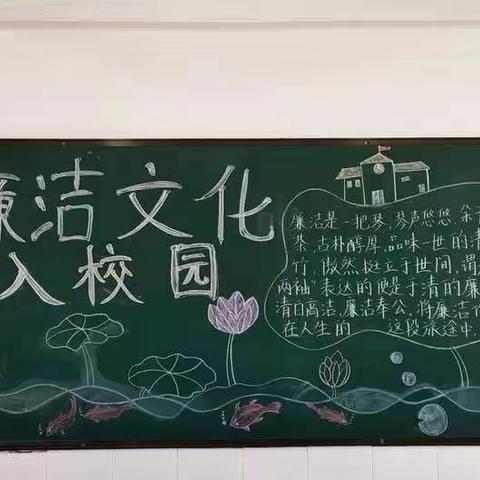 廉洁文化
入校园
廉洁是一把琴,琴声悠悠,余音
茶,古朴醇厚,品味一世的清
竹,傲然挺立于世间,谓
两袖"表达的便是于清的廉
清白高洁,廉洁奉公,将廉洁作
在人生的 这段旅途中,